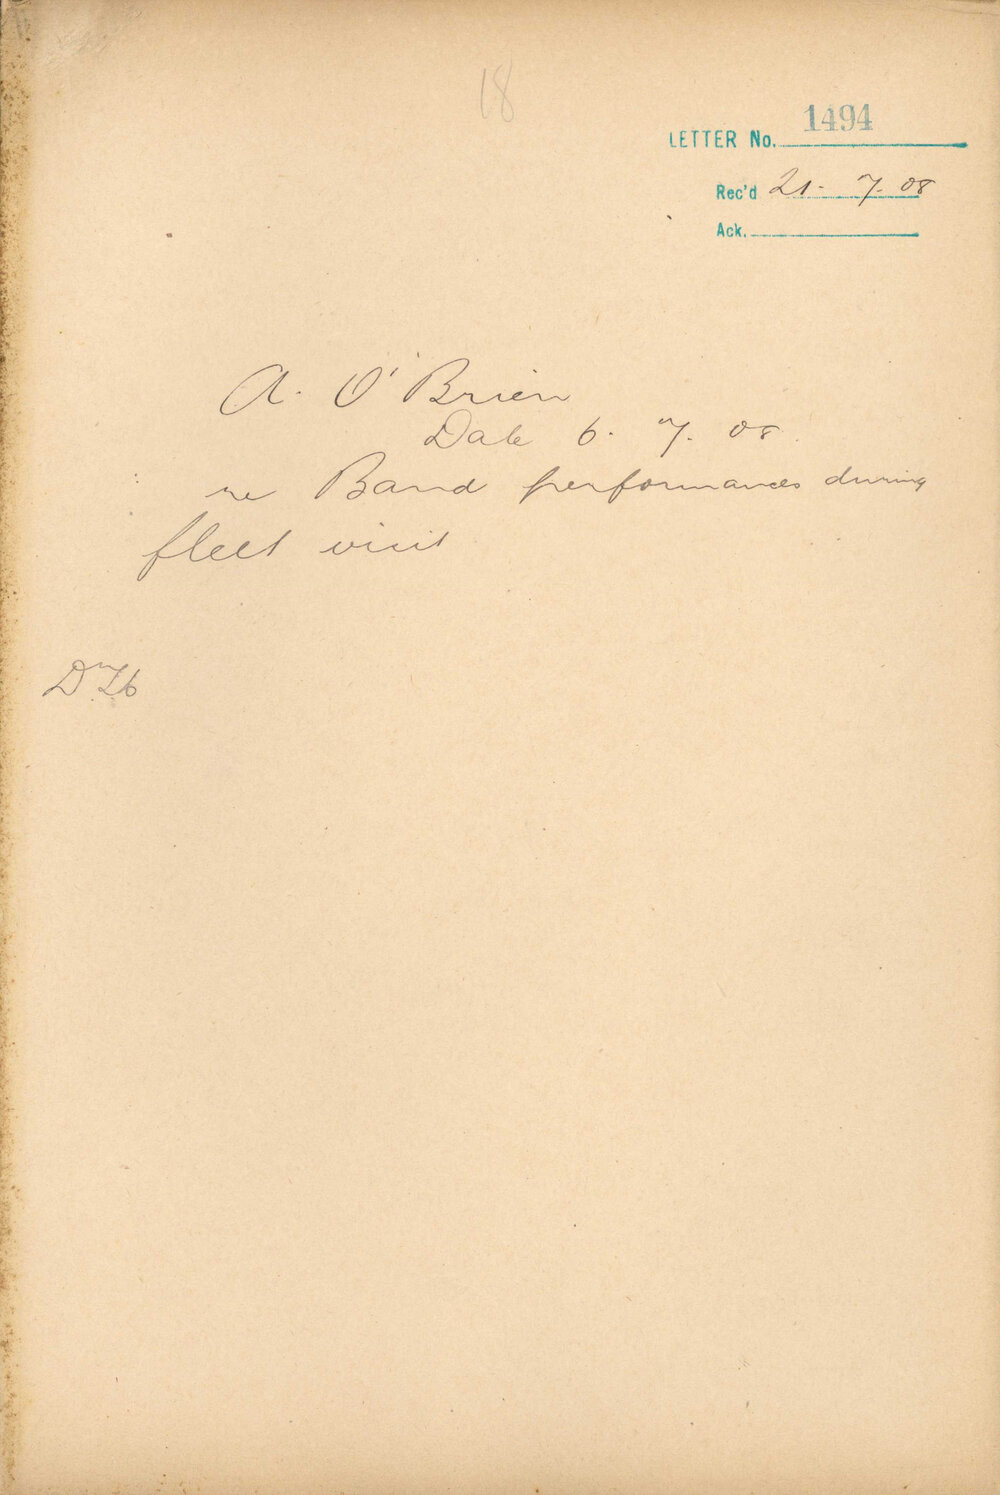 18
LETTER No. 1494
Rec'd 21. 7. 08
Ack.
A. O'Brien
Date 6. 7. 08.
re Band performances during
fleet visit